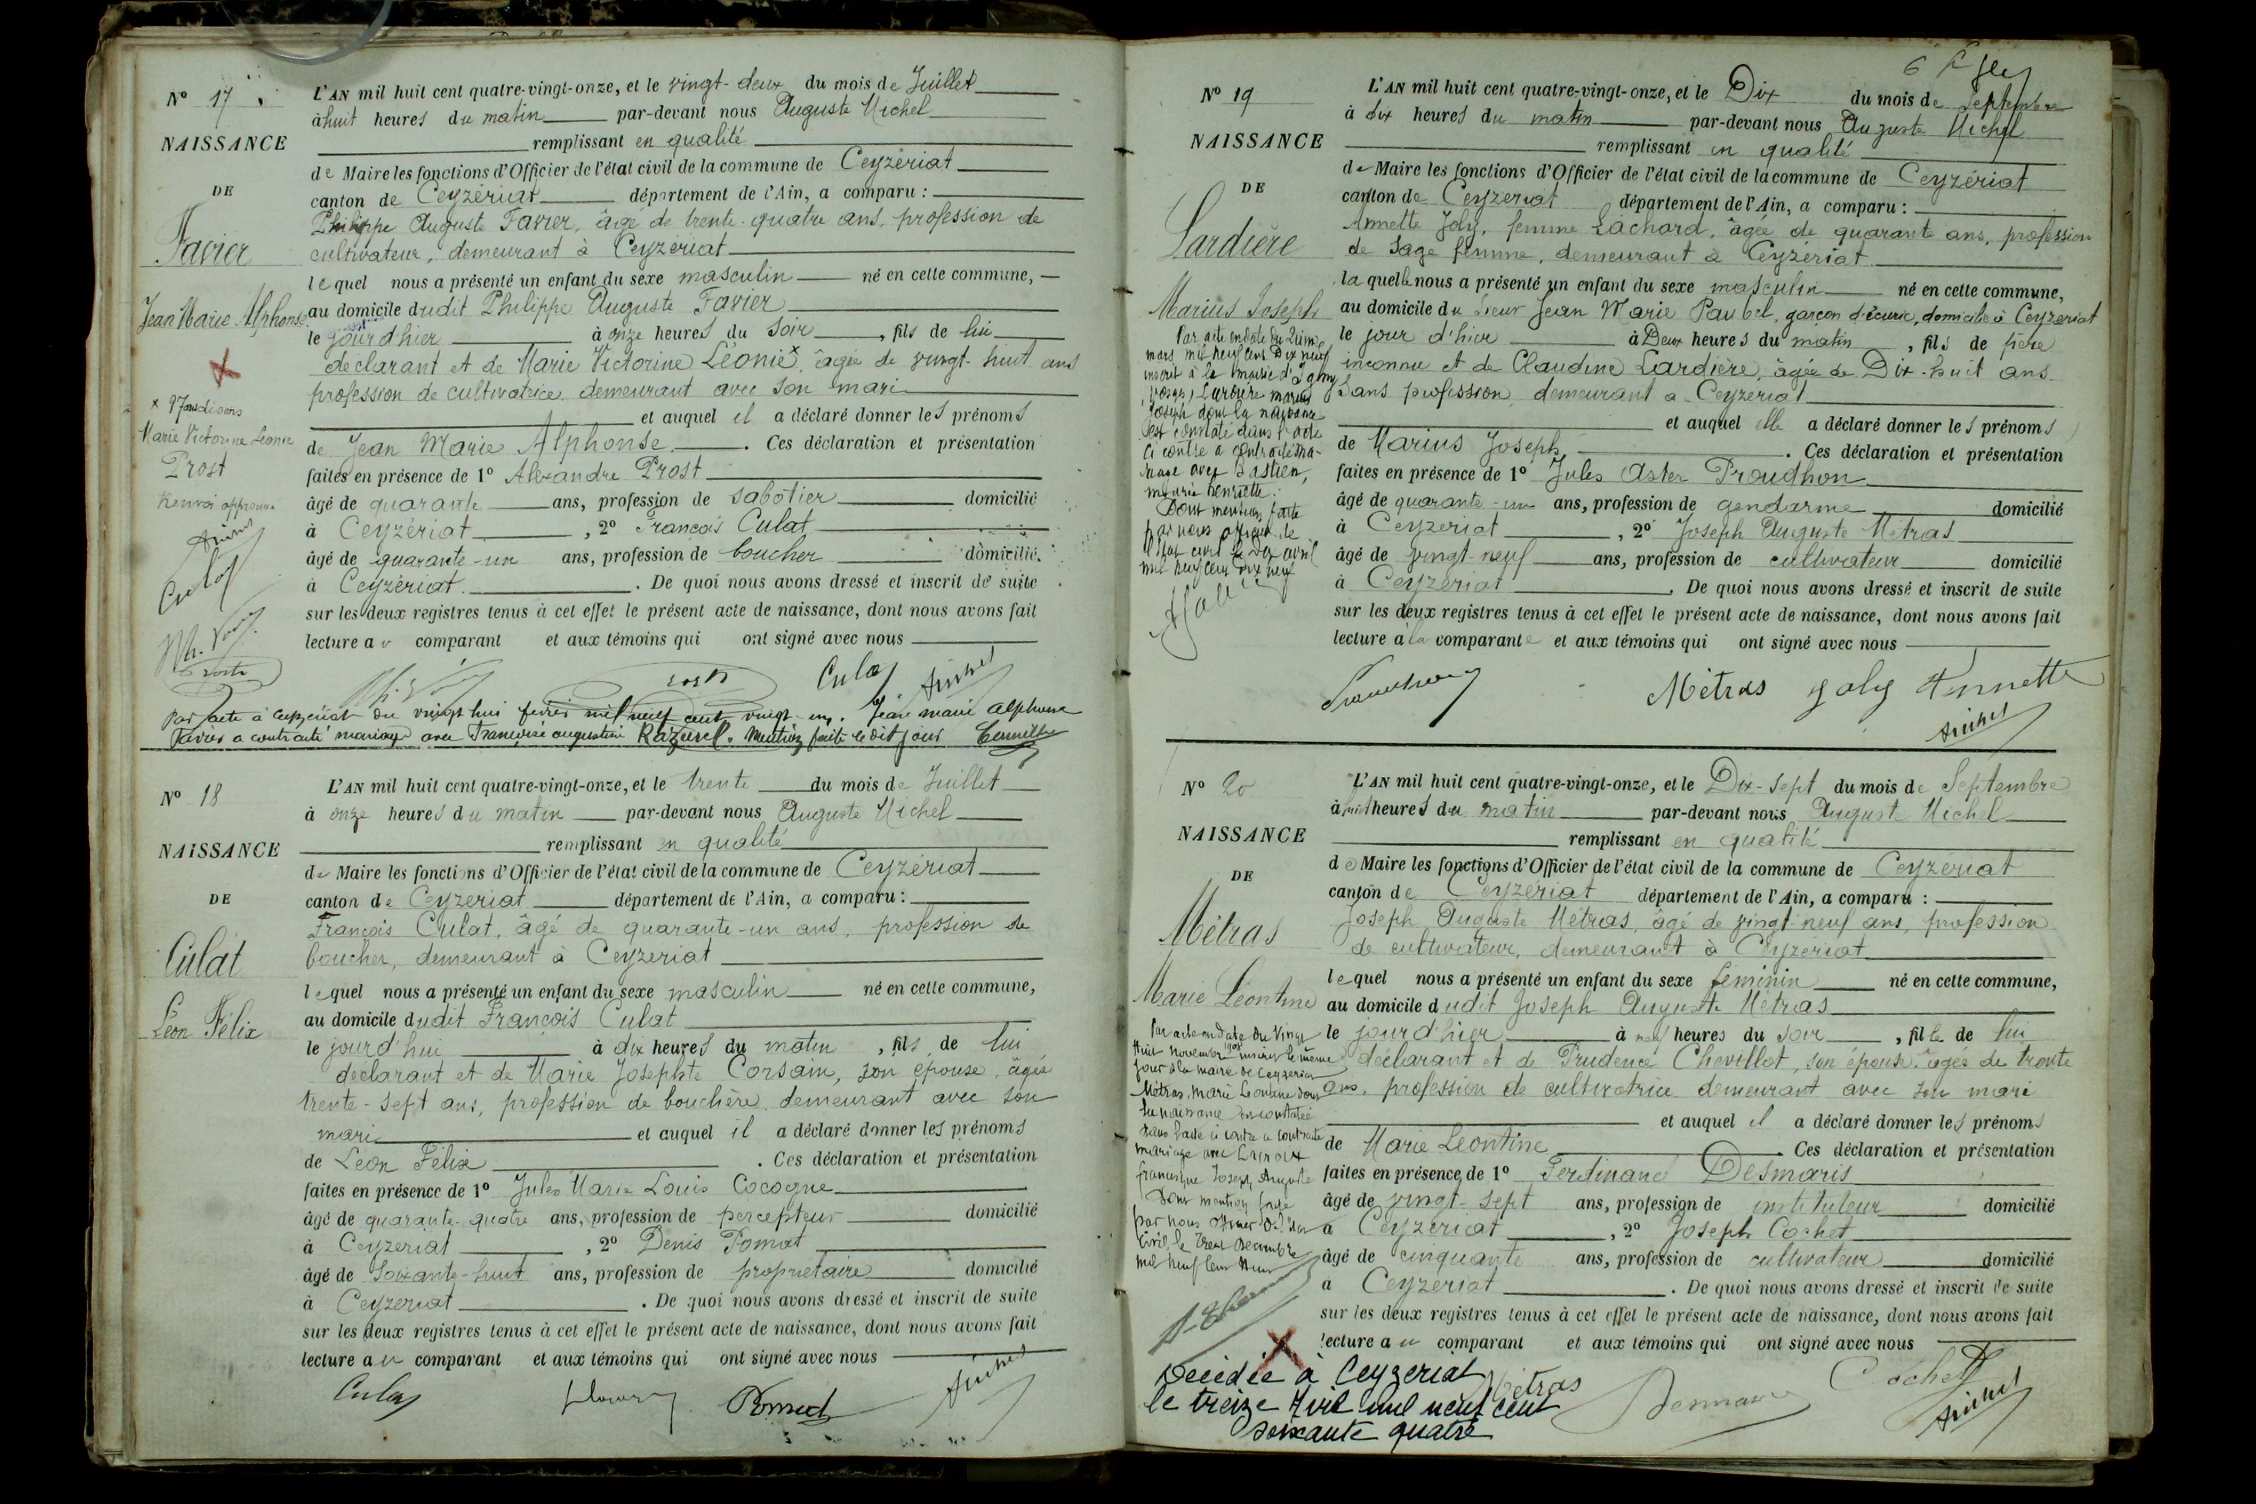 N° 17
NAISSANCE
DE
Favier
Jean Marie Alphonse
× 9 Nous disons
Marie Victorine Léonie
Prost
Renvoi approuvé
Michel
Culat
L'AN mil huit cent quatre-vingt-onze, et le vingt-deux du mois de Juillet
à huit heures du matin par-devant nous Auguste Michel
remplissant en qualité
de Maire les fonctions d'Officier de l'état civil de la commune de Ceyzériat
canton de Ceyzériat département de l'Ain, a comparu :
Philippe Auguste Favier, âgé de trente-quatre ans, profession de
cultivateur, demeurant à Ceyzériat
lequel nous a présenté un enfant du sexe masculin né en cette commune,
au domicile dudit Philippe Auguste Favier
le jour d'hier à onze heures du soir, fils de lui
déclarant et de Marie Victorine Léonie×, âgée de vingt-huit ans
profession de cultivatrice demeurant avec son mari
et auquel il a déclaré donner les prénoms
de Jean Marie Alphonse. Ces déclaration et présentation
faites en présence de 1° Alexandre Prost
âgé de quarante ans, profession de sabotier domicilié
à Ceyzériat, 2° François Culat
âgé de quarante-un ans, profession de boucher domicilié
à Ceyzériat. De quoi nous avons dressé et inscrit de suite
sur les deux registres tenus à cet effet le présent acte de naissance, dont nous avons fait
lecture au comparant et aux témoins qui ont signé avec nous
Culat Michel
Par acte à Ceyzériat du vingt huit fevrier mil neuf cent vingt un. Jean marie alphonse
Favier a contracté mariage avec Françoise augustine Razurel. Mention faite le dit jour
N° 18
NAISSANCE
DE
Culat
Léon Félix
L'AN mil huit cent quatre-vingt-onze, et le trente du mois de Juillet
à onze heures du matin par-devant nous Auguste Michel
remplissant en qualité
de Maire les fonctions d'Officier de l'état civil de la commune de Ceyzériat
canton de Ceyzeriat département de l'Ain, a comparu :
François Culat, âgé de quarante-un ans, profession de
boucher, demeurant à Ceyzeriat
lequel nous a présenté un enfant du sexe masculin né en cette commune,
au domicile dudit François Culat
le jourd'hui à dix heures du matin, fils de lui
déclarant et de Marie Josephte Corsain, son épouse, âgée
trente-sept ans, profession de bouchère demeurant avec son
mari et auquel il a déclaré donner les prénoms
de Léon Félix. Ces déclaration et présentation
faites en présence de 1° Jules Marie Louis Cocogne
âgé de quarante-quatre ans, profession de percepteur domicilié
à Ceyzeriat, 2° Denis Pomat
âgé de Soixante-huit ans, profession de propriétaire domicilié
à Ceyzeriat. De quoi nous avons dressé et inscrit de suite
sur les deux registres tenus à cet effet le présent acte de naissance, dont nous avons fait
lecture au comparant et aux témoins qui ont signé avec nous
Culat Michel
N° 19
NAISSANCE
DE
Lardière
Marius Joseph
Par acte en date du
mars mil neuf cent Dix neuf
inscrit à la mairie d'Igney
(Vosges) Lardière marius
Joseph dont la naissance
est constatée dans l'acte
ci contre a contracté ma-
riage avec Bastien,
marie henriette.
Dont mention faite
par nous officier de
l'état civil le dix avril
mil neuf cent dix neuf
L'AN mil huit cent quatre-vingt-onze, et le Dix du mois de Septembre
à dix heures du matin par-devant nous Auguste Michel
remplissant en qualité
de Maire les fonctions d'Officier de l'état civil de la commune de Ceyzériat
canton de Ceyzeriat département de l'Ain, a comparu :
Annette Joly, femme Lâchard, âgée de quarante ans, profession
de sage femme, demeurant à Ceyzériat
la quelle nous a présenté un enfant du sexe masculin né en cette commune,
au domicile du sieur Jean Marie Paubel, garçon d'écurie, domicilié à Ceyzeriat
le jour d'hier à Deux heures du matin, fils de père
inconnu et de Claudine Lardière, âgée de Dix-huit ans
sans profession demeurant à Ceyzeriat
et auquel elle a déclaré donner les prénoms
de Marius Joseph. Ces déclaration et présentation
faites en présence de 1° Jules Aster Proudhon
âgé de quarante-un ans, profession de gendarme domicilié
à Ceyzeriat, 2° Joseph Auguste Métras
âgé de vingt-neuf ans, profession de cultivateur domicilié
à Ceyzeriat. De quoi nous avons dressé et inscrit de suite
sur les deux registres tenus à cet effet le présent acte de naissance, dont nous avons fait
lecture à la comparante et aux témoins qui ont signé avec nous
Métras Joly Annette
Michel
N° 20
NAISSANCE
DE
Métras
Marie Léontine
Par acte en date du Vingt
huit novembre inscrit le même
jour à la mairie de Ceyzeriat
Métras, Marie Léontine dont
la naissance est constatée
dans l'acte ci contre a contracté
mariage avec
Joseph Auguste
Dont mention faite
par nous officier de l'état
civil, le Décembre
mil neuf cent
L'AN mil huit cent quatre-vingt-onze, et le Dix-sept du mois de Septembre
à huit heures du matin par-devant nous Auguste Michel
remplissant en qualité
de Maire les fonctions d'Officier de l'état civil de la commune de Ceyzeriat
canton de Ceyzériat département de l'Ain, a comparu :
Joseph Auguste Métras, âgé de vingt neuf ans, profession
de cultivateur, demeurant à Ceyzeriat
lequel nous a présenté un enfant du sexe féminin né en cette commune,
au domicile dudit Joseph Auguste Métras
le jour d'hier à neuf heures du soir, fille de lui
déclarant et de Prudence Chevillot, son épouse, âgée de trente
ans, profession de cultivatrice demeurant avec son mari
et auquel il a déclaré donner les prénoms
de Marie Léontine. Ces déclaration et présentation
faites en présence de 1° Ferdinand Desmaris
âgé de vingt-sept ans, profession de instituteur domicilié
à Ceyzeriat, 2° Joseph Cochet
âgé de cinquante ans, profession de cultivateur domicilié
à Ceyzeriat. De quoi nous avons dressé et inscrit de suite
sur les deux registres tenus à cet effet le présent acte de naissance, dont nous avons fait
lecture au comparant et aux témoins qui ont signé avec nous
Métras Cochet
Michel
Décédée à Ceyzeriat
le treize Avril mil neuf cent
soixante quatre